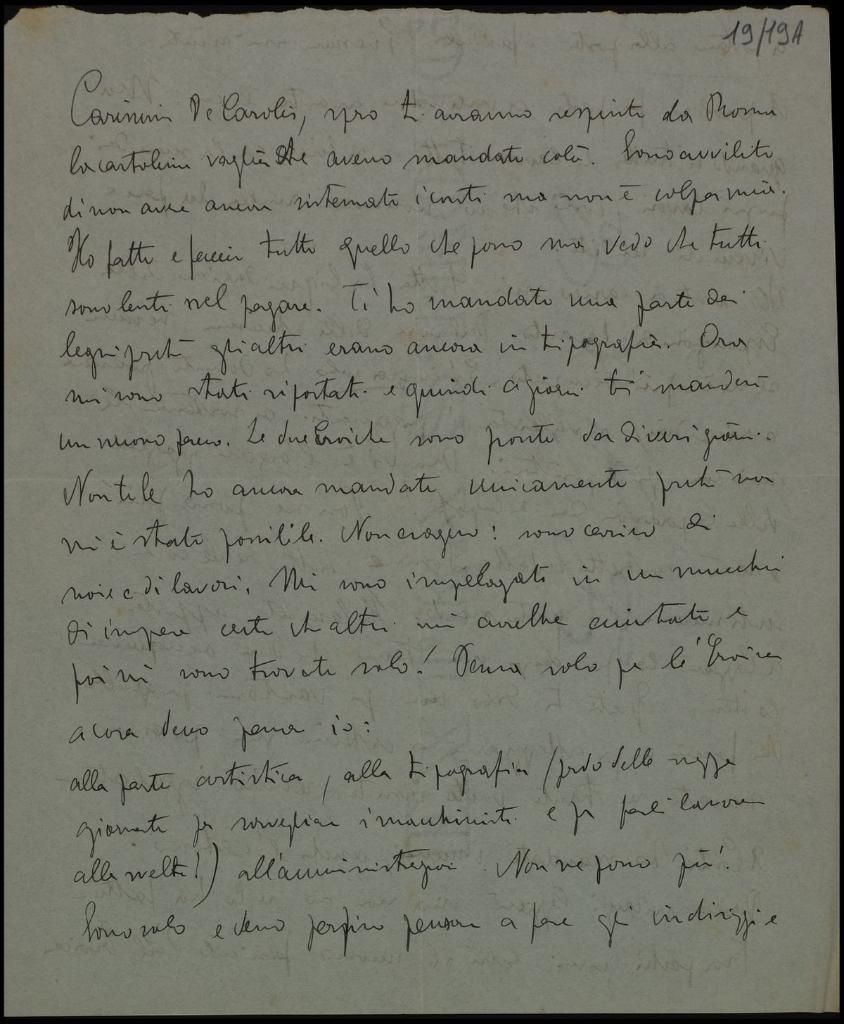 19/19A
Carissimo De Carolis, spero ti avranno respinto da Roma
la cartolina vaglia che avevo mandato colà. Sono avvilito
di non aver ancora sistemati i conti ma non è colpa mia.
Ho fatto e faccio tutto quello che posso ma vedo che tutti
sono lenti nel pagare. Ti ho mandato una parte dei
legni perché gli altri erano ancora in tipografia. Ora
mi sono stati riportati e quindi a giorni ti manderò
un nuovo pacco. Le due Eroiche sono pronte da diversi giorni.
Non te le ho ancora mandate unicamente perché non
mi è stato possibile. Non esagero: sono carico di
noie e di lavori. Mi sono impelagato in un mucchio
di imprese certo che altri mi avrebbe aiutato e
poi mi sono trovato solo! Pensa solo per l'Eroica
a cosa devo pensar io:
alla parte artistica, alla tipografia (perdo delle mezze
giornate per sorvegliare i macchinisti e per farli lavorare
alla svelta!) all'amministrazione. Non ne posso più.
Sono solo e devo perfino pensare a fare gli indirizzi e